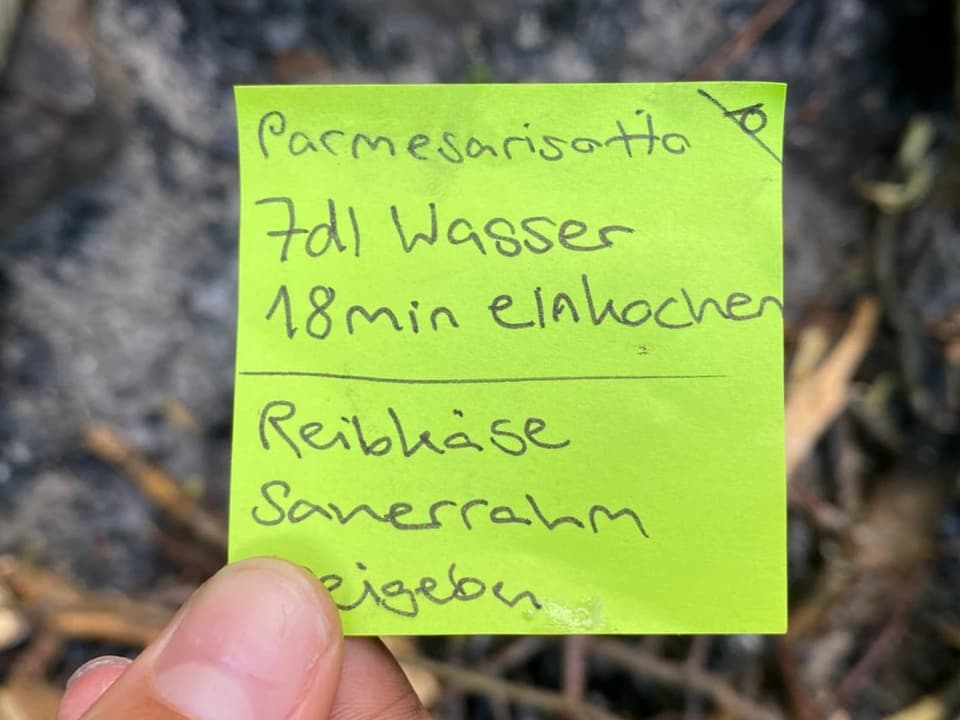 Parmesarisotto
7dl Wasser
18min einkochen
Reibkäse
Sauerrahm
eigeben